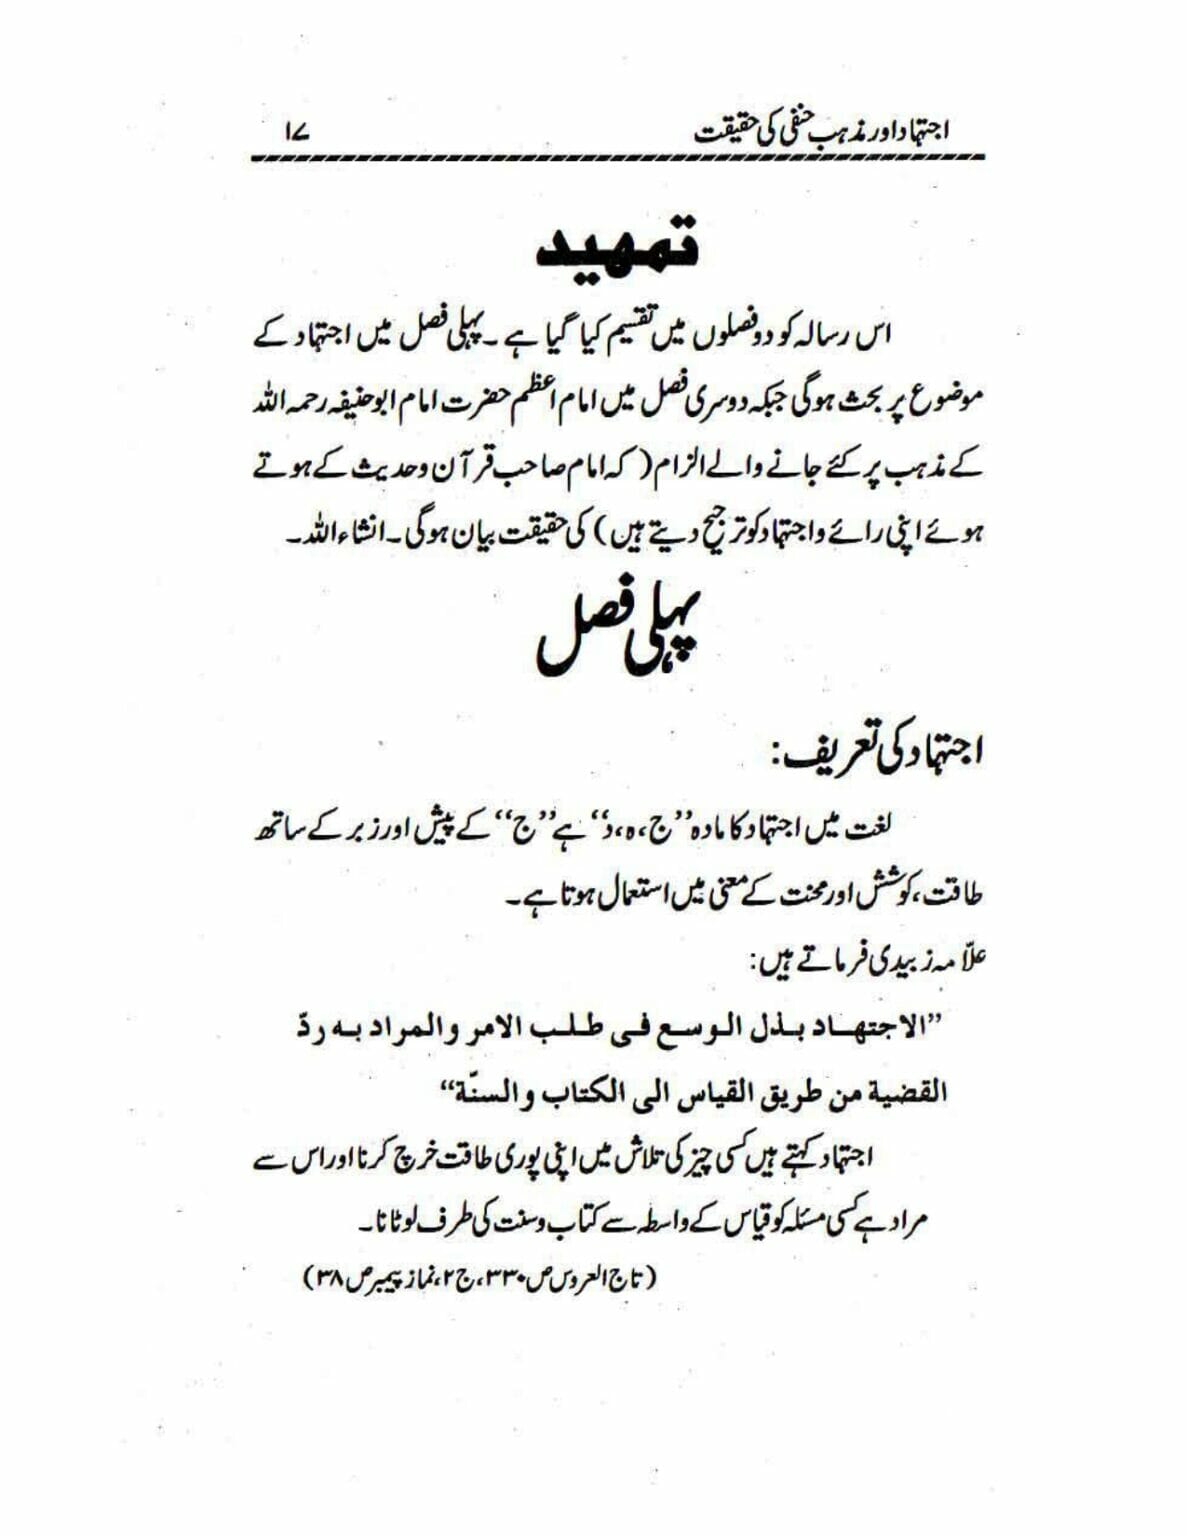 اجتہاد اور مذہب حنفی کی حقیقت ۱۷
تمہید
اس رسالہ کو دو فصلوں میں تقسیم کیا گیا ہے۔ پہلی فصل میں اجتہاد کے
موضوع پر بحث ہوگی جبکہ دوسری فصل میں امام اعظم حضرت امام ابوحنیفہ رحمہ اللہ
کے مذہب پر کئے جانے والے الزام (کہ امام صاحب قرآن وحدیث کے ہوتے
ہوئے اپنی رائے واجتہاد کو ترجیح دیتے ہیں) کی حقیقت بیان ہوگی۔ انشاء اللہ۔
پہلی فصل
اجتہاد کی تعریف:
لغت میں اجتہاد کا مادہ ”ج، ہ، د“ ہے ”ج“ کے پیش اور زبر کے ساتھ
طاقت، کوشش اور محنت کے معنی میں استعمال ہوتا ہے۔
علّامہ زبیدی فرماتے ہیں:
”الاجتهاد بذل الوسع فی طلب الامر والمراد به ردّ
القضیة من طریق القیاس الی الکتاب والسنّة“
اجتہاد کہتے ہیں کسی چیز کی تلاش میں اپنی پوری طاقت خرچ کرنا اور اس سے
مراد ہے کسی مسئلہ کو قیاس کے واسطہ سے کتاب وسنت کی طرف لوٹانا۔
(تاج العروس ص۳۳۰، ج۲، نماز پیمبر ص۳۸)